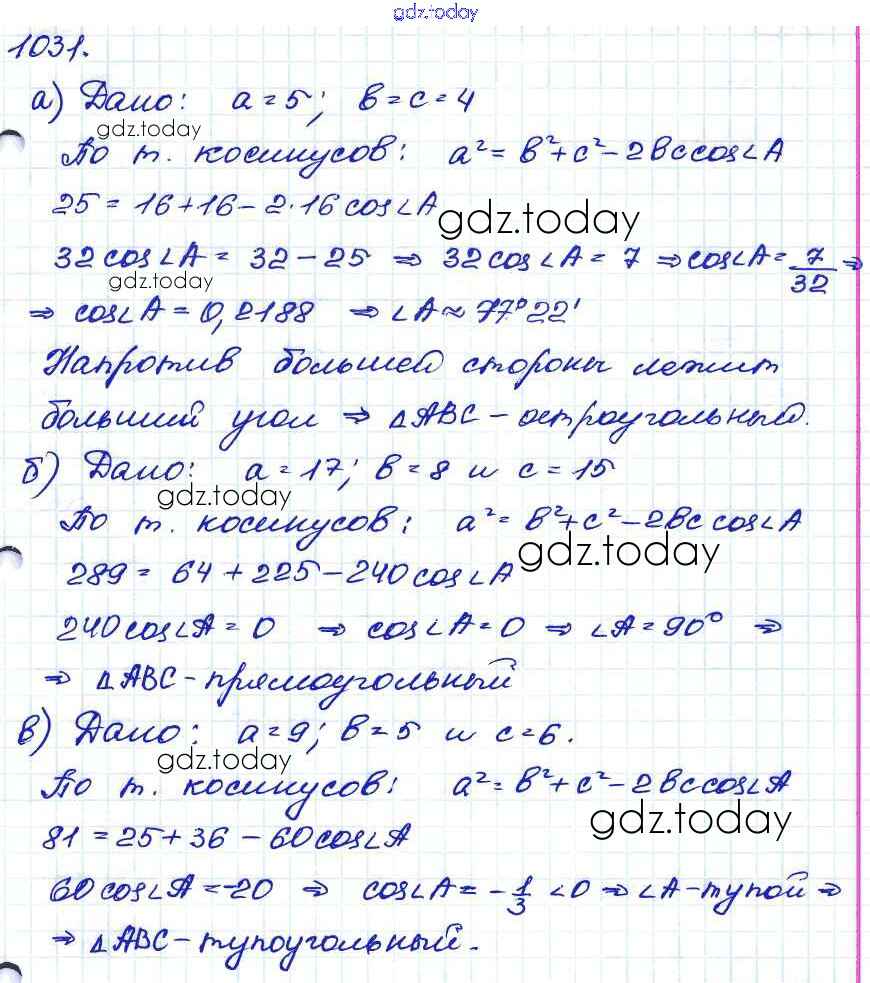 gdz.today
1031.
а) Дано: a = 5; b = c = 4
gdz.today
По т. косинусов: a² = b² + c² - 2bc cos∠A
25 = 16 + 16 - 2·16 cos∠A
gdz.today
32 cos∠A = 32 - 25 ⇒ 32 cos∠A = 7 ⇒ cos∠A = 7/32 ⇒
gdz.today
⇒ cos∠A = 0,2188 ⇒ ∠A ≈ 77° 22'
Напротив большей стороны лежит
больший угол ⇒ △ABC - остроугольный.
б) Дано: a = 17; b = 8 и c = 15
gdz.today
По т. косинусов: a² = b² + c² - 2bc cos∠A
gdz.today
289 = 64 + 225 - 240 cos∠A
240 cos∠A = 0 ⇒ cos∠A = 0 ⇒ ∠A = 90° ⇒
⇒ △ABC - прямоугольный
в) Дано: a = 9; b = 5 и c = 6.
gdz.today
По т. косинусов: a² = b² + c² - 2bc cos∠A
gdz.today
81 = 25 + 36 - 60 cos∠A
60 cos∠A = -20 ⇒ cos∠A = - 1/3 < 0 ⇒ ∠A - тупой ⇒
⇒ △ABC - тупоугольный.